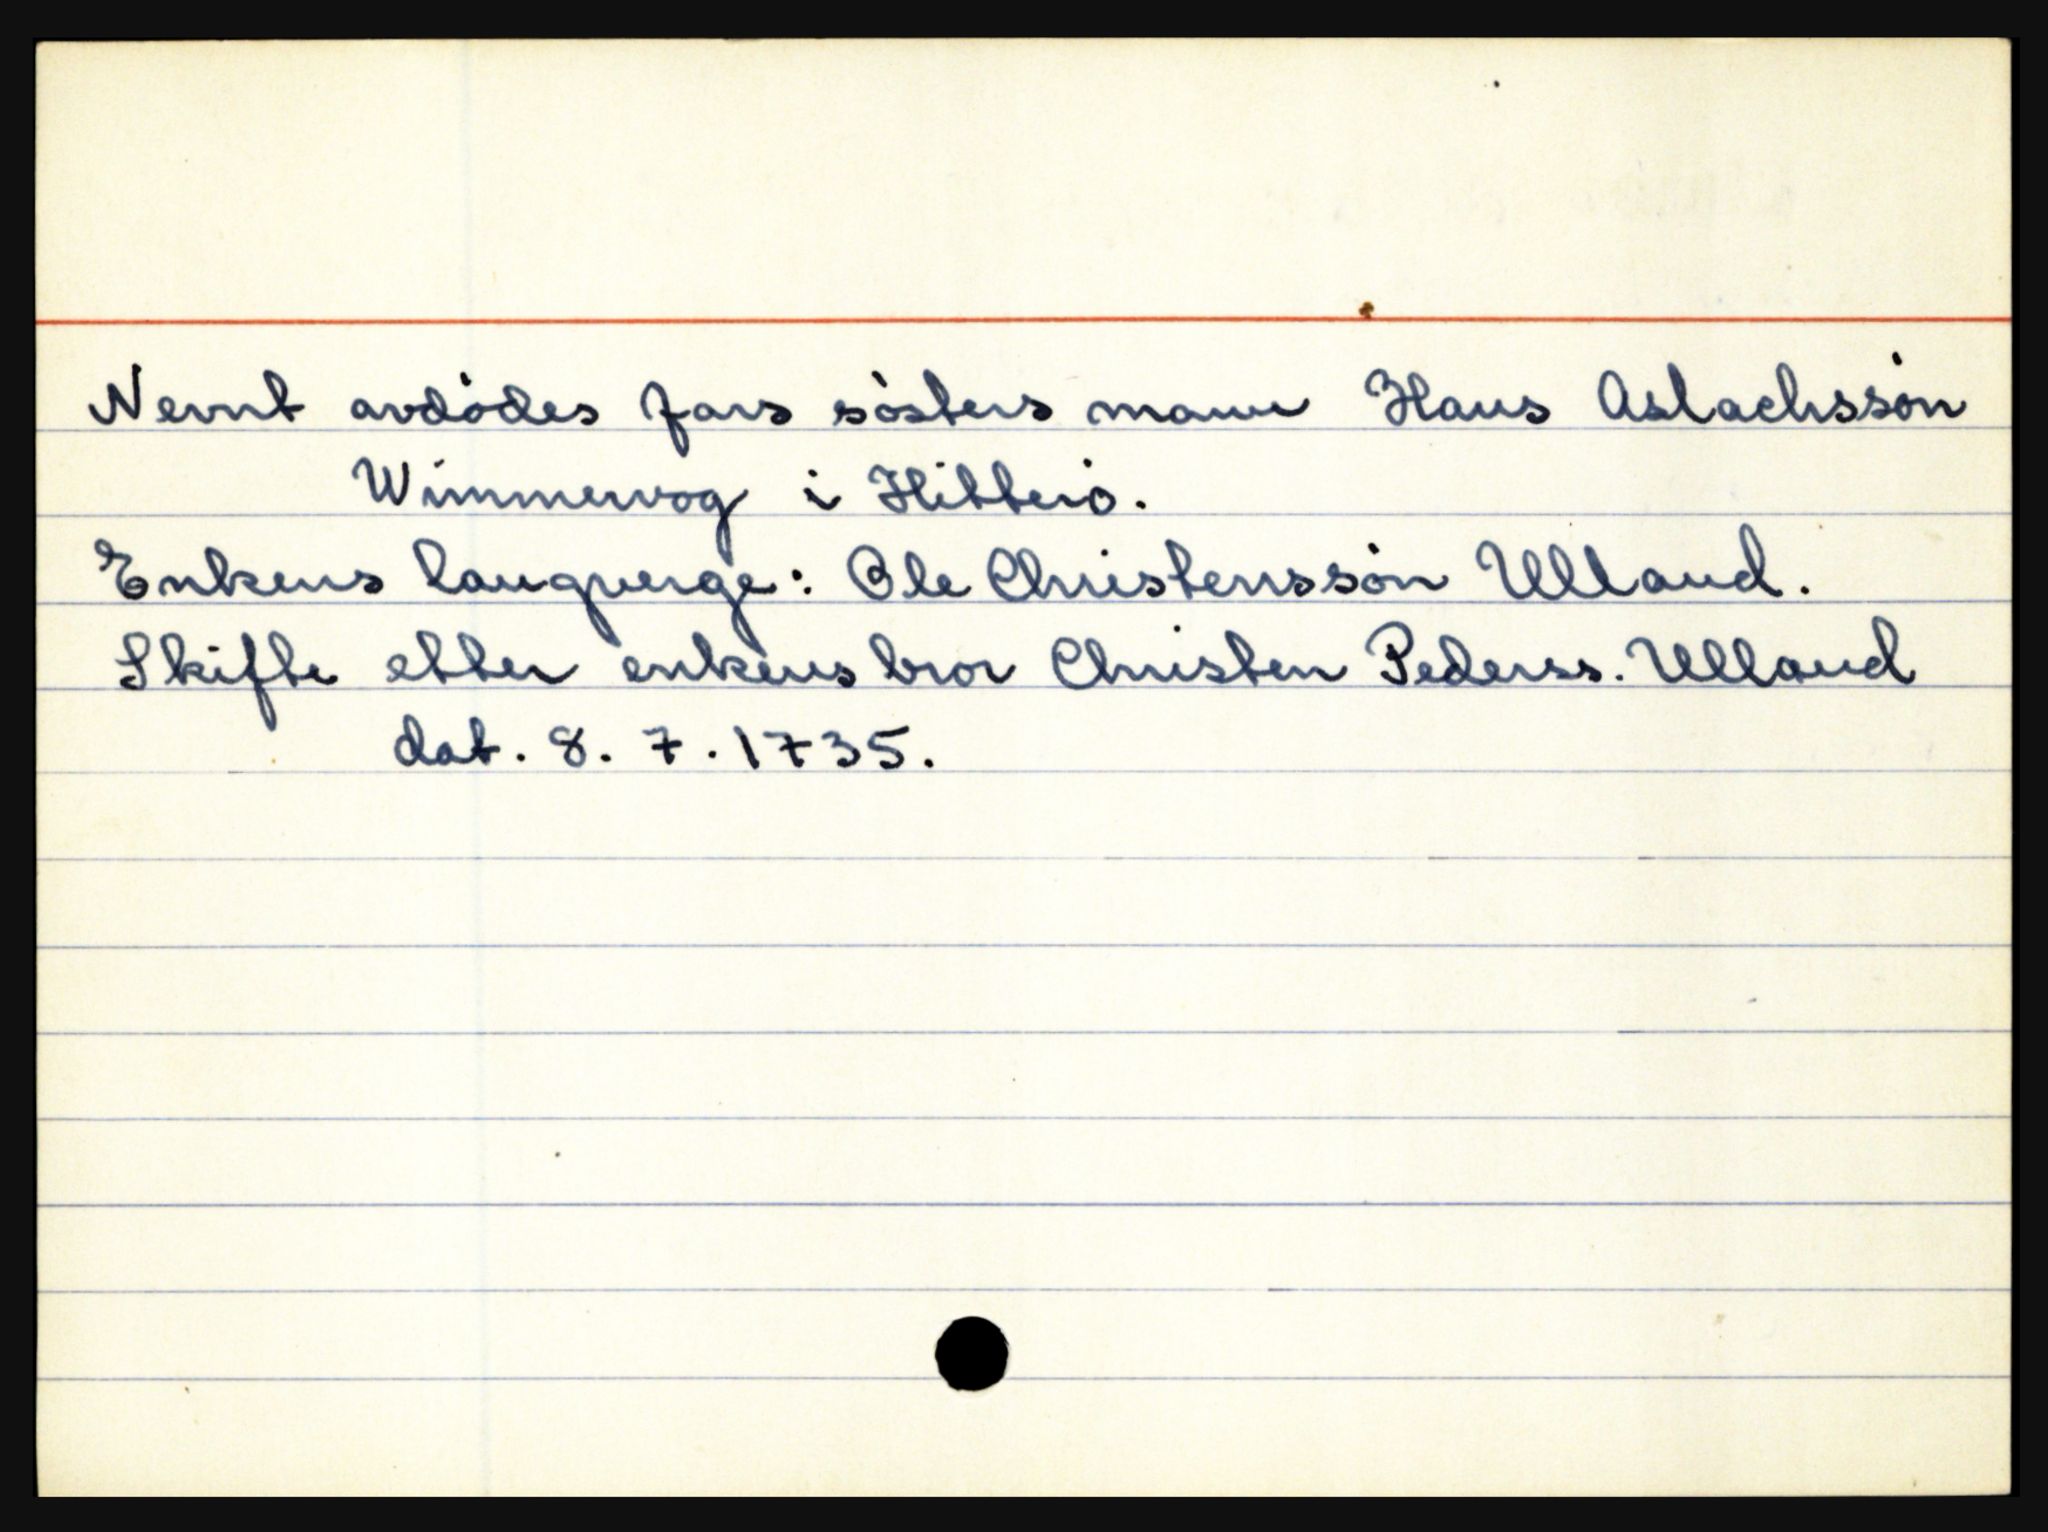 Nevnt avdødes fars søsters mann Hans Aslachssøn
Wimmervog i Hitterø.
Enkens laugverge: Ole Christenssøn Ulland.
Skifte etter enkens bror Christen Pederss. Ulland
dat. 8. 7. 1735.